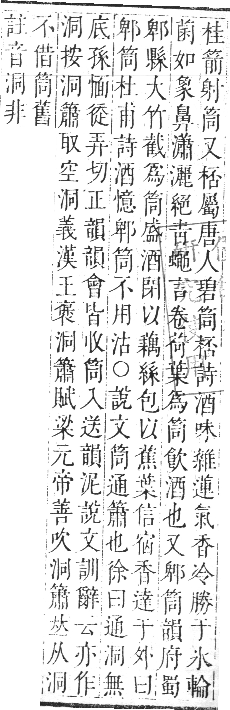 桂箭射筒又桮屬唐人碧筒桮詩酒味雜蓮氣香冷勝于氷輪
菌如象鼻瀟灑絕靑蠅言卷荷葉為筒飲酒也又郫筒韻府蜀
郫縣大竹截為筒盛酒閉以藕絲包以蕉葉信宿香達于外曰
郫筒杜甫詩酒憶郫筒不用沽○說文筒通簫也徐曰通洞無
底孫愐從弄切正韻韻會皆收筒入送韻泥說文訓辭云亦作
洞按洞簫取空洞義漢王褒洞簫賦梁元帝善吹洞簫竝从洞
不借筒舊
註音洞非